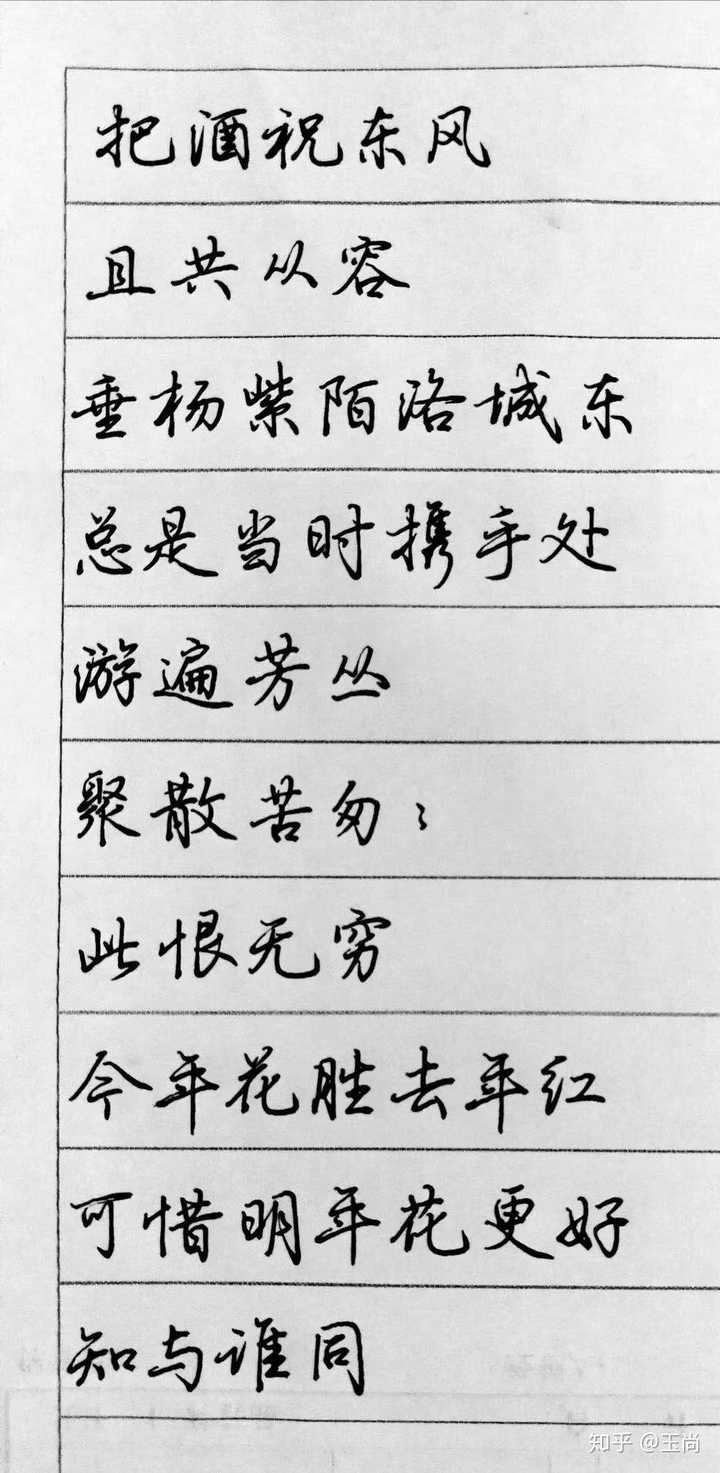 把酒祝东风
且共从容
垂杨紫陌洛城东
总是当时携手处
游遍芳丛
聚散苦匆〻
此恨无穷
今年花胜去年红
可惜明年花更好
知与谁同
知乎 @玉尚